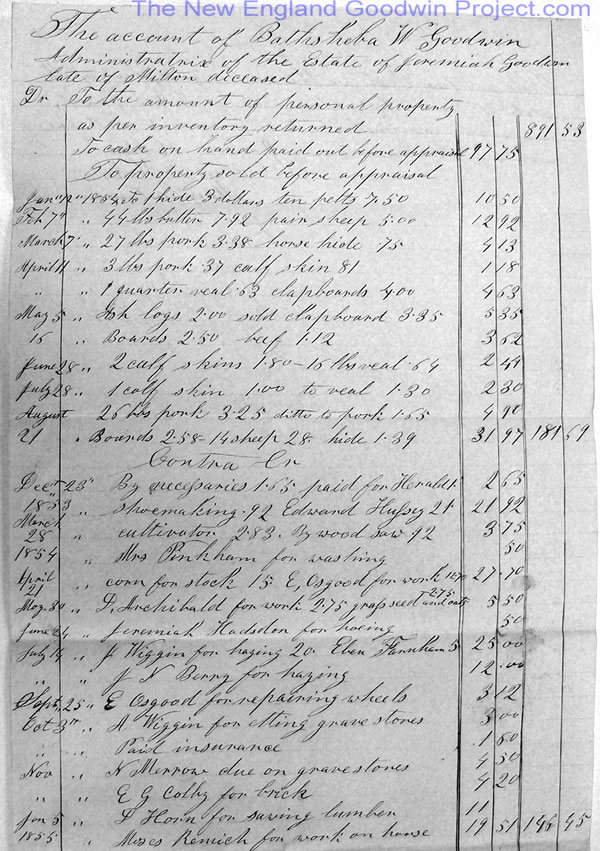 The New England Goodwin Project.com
The account of Bathsheba W Goodwin
Administratrix of the Estate of Jeremiah Goodwin
late of Milton deceased
Dr To the amount of personal property
as per inventory returned 891 53
To cash on hand paid out before appraisal 97 75
To property sold before appraisal
Jany 12" 1854 to 1 hide 3 dollars ten pelts 7.50 10 50
Feb 7" " 44 lbs butter 7.92 pair sheep 5.00 12 92
March 7 " 27 lbs pork 3.38 horse hide .75 4 13
April 11 " 3 lbs pork 37 calf skin 81 1 18
" " 1 quarter veal .63 clapboards 4.00 4 63
May 5 " Ash logs 2.00 sold clapboard 3.35 5 35
16 " Boards 2.50 beef 1.12 3 62
June 28 " 2 calf skins 1.80 - 16 lbs veal .64 2 44
July 28 " 1 calf skin 1.00 to veal 1.30 2 30
August 26 lbs pork 3.25 ditto to pork 1.65 4 90
21 " Boards 2.58 - 14 sheep 28. hide 1.39 31 97 181 69
Contra Cr
Decm 23" By necessaries 1.65 paid for Herald 1 2 65
1853 " shoemaking .92 Edward Hussey 21 21 92
March 28 " cultivator 2.83. By wood saw 92 3 75
1854 " Mrs Pinkham for washing 50
April 21 " corn for stock 15 E, Osgood for work 12.70 27.70
May 30 " D, Archibald for work 2.75 grass seed and oats 2.75 5 50
June 24 " Jeremiah Hadsdon for hoeing 50
July 14 " J Wiggin for haying 20. Eben Farnham 5 25 00
" " J N Berry for haying 12.00
Sept, 25 " E Osgood for repairing wheels 3 12
Oct 3rd " A Wiggin for etting grave stones 3 00
" " Paid insurance .1 60
Nov " N Merrow due on grave stones 4 50
" " E G Colby for brick 4 20
Jan 5 " D Horn for sawing lumber 11
1855 " Moses Remich for work on house 19 51 146 45